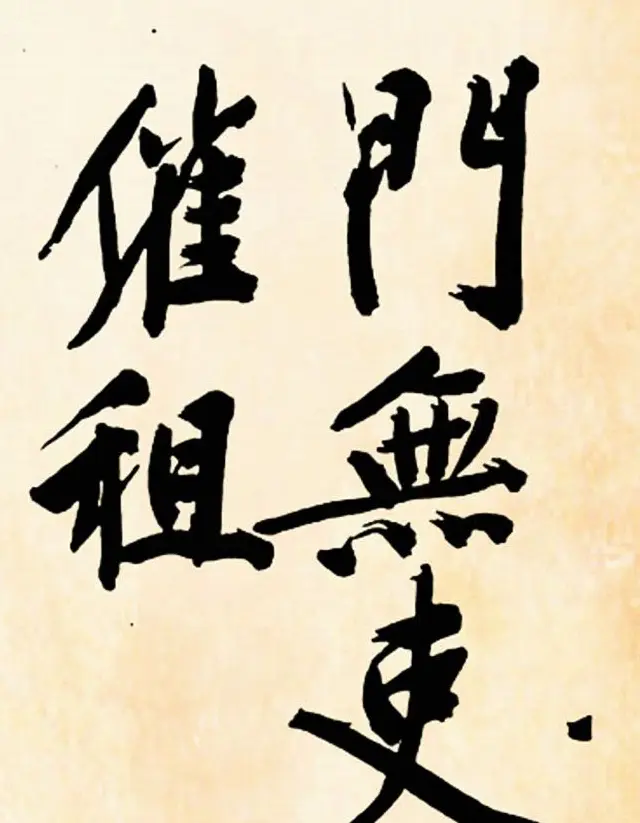 門無吏
催租